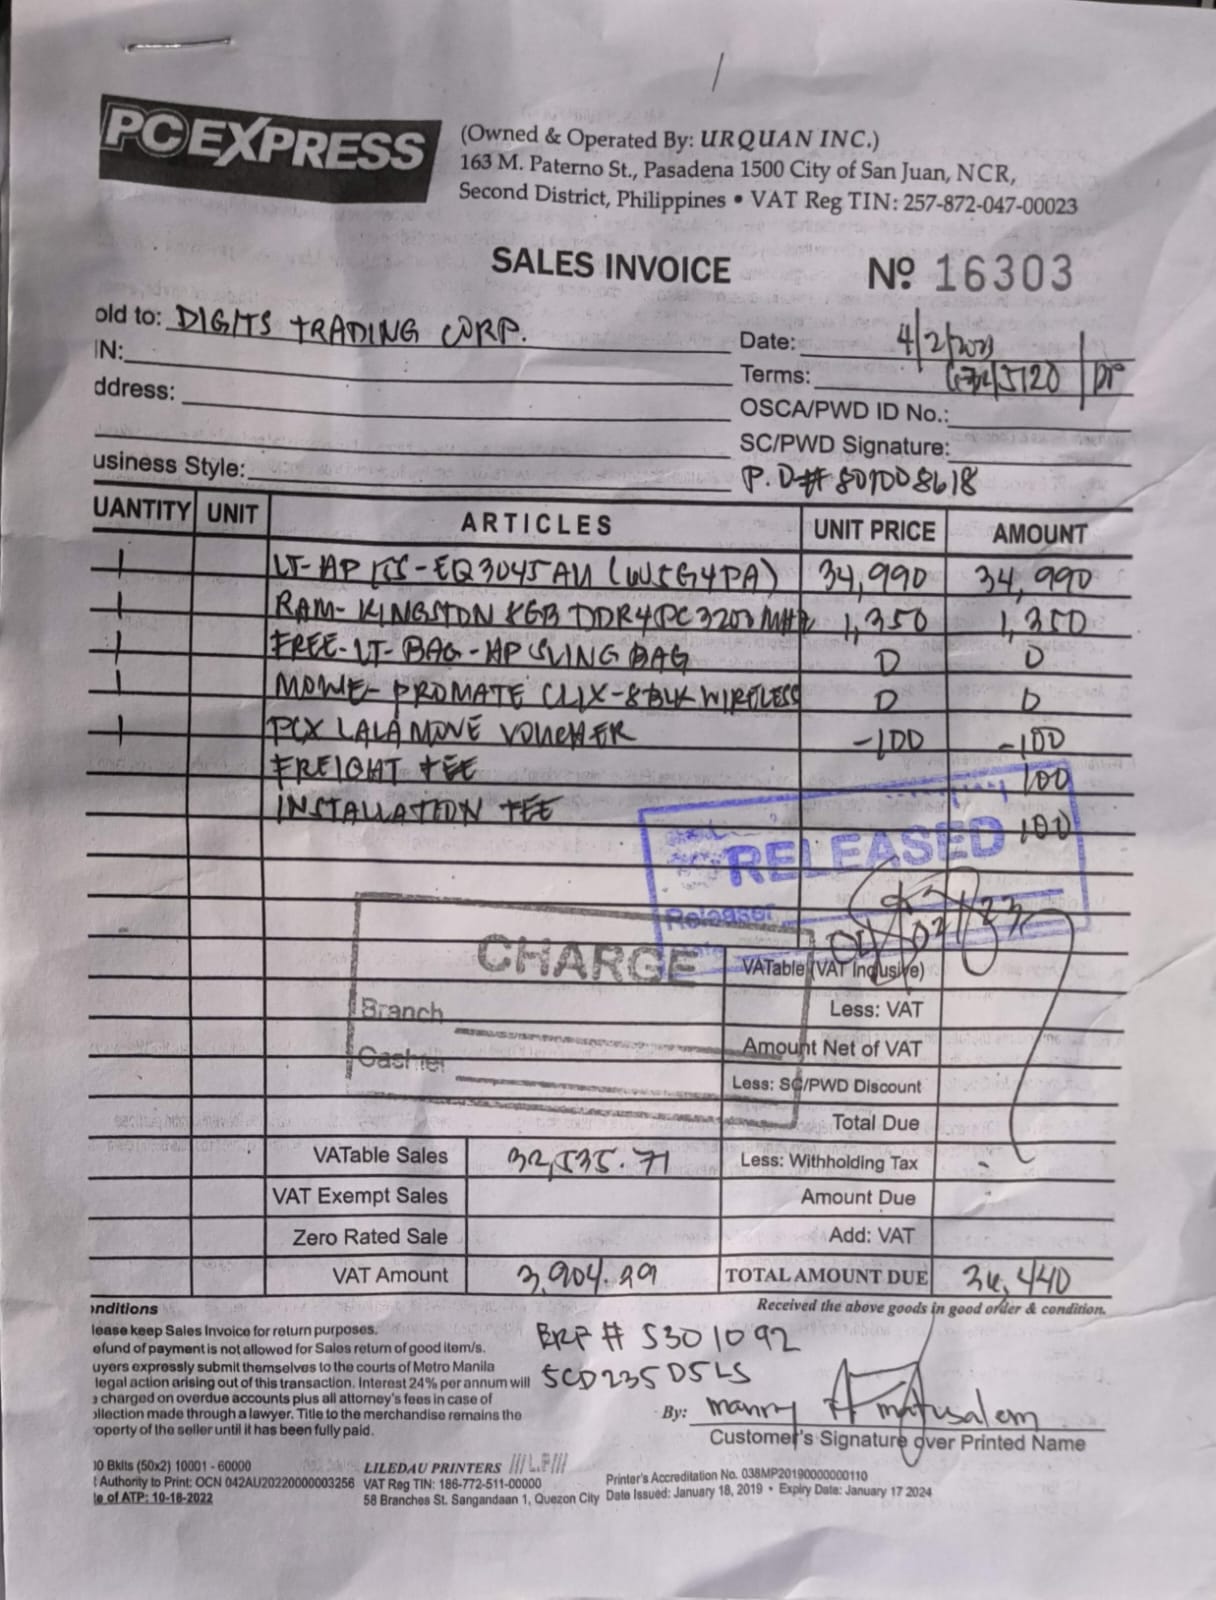 PCEXPRESS
(Owned & Operated By: URQUAN INC.)
163 M. Paterno St., Pasadena 1500 City of San Juan, NCR,
Second District, Philippines • VAT Reg TIN: 257-872-047-00023
SALES INVOICE Nº 16303
old to: DIGITS TRADING CORP.
Date: 4/2/2023
IN:
Terms:
ddress:
OSCA/PWD ID No.:
SC/PWD Signature:
usiness Style:
P.O# 801008618
UANTITY UNIT ARTICLES UNIT PRICE AMOUNT
1 LT-HP 15S-EQ3045AU (6U5G4PA) 34,990 34,990
1 RAM-KINGSTON 8GB DDR4 PC3200MHZ 1,350 1,350
1 FREE-LT-BAG-HP SLING BAG 0 0
1 MOUSE-PROMATE CLIX-8 BLK WIRELESS 0 0
1 PCX LALAMOVE VOUCHER -100 -100
FREIGHT FEE 100
INSTALLATION FEE 100
RELEASED
Releaser
CHARGE
VATable (VAT Inclusive)
Branch
Less: VAT
Amount Net of VAT
Cashier
Less: SC/PWD Discount
Total Due
VATable Sales 32,535.71 Less: Withholding Tax -
VAT Exempt Sales Amount Due
Zero Rated Sale Add: VAT
VAT Amount 3,904.29 TOTAL AMOUNT DUE 36,440
Received the above goods in good order & condition.
onditions
lease keep Sales Invoice for return purposes.
efund of payment is not allowed for Sales return of good item/s.
uyers expressly submit themselves to the courts of Metro Manila
legal action arising out of this transaction. Interest 24% per annum will
e charged on overdue accounts plus all attorney's fees in case of
ollection made through a lawyer. Title to the merchandise remains the
operty of the seller until it has been fully paid.
BRP # 5301092
5CD235D5LS
By: manny matusalem
Customer's Signature over Printed Name
00 Bklts (50x2) 10001 - 60000
t Authority to Print: OCN 042AU20220000003256
te of ATP: 10-18-2022
LILEDAU PRINTERS
VAT Reg TIN: 186-772-511-00000
58 Branches St. Sangandaan 1, Quezon City
Printer's Accreditation No. 038MP20190000000110
Date Issued: January 18, 2019 • Expiry Date: January 17 2024